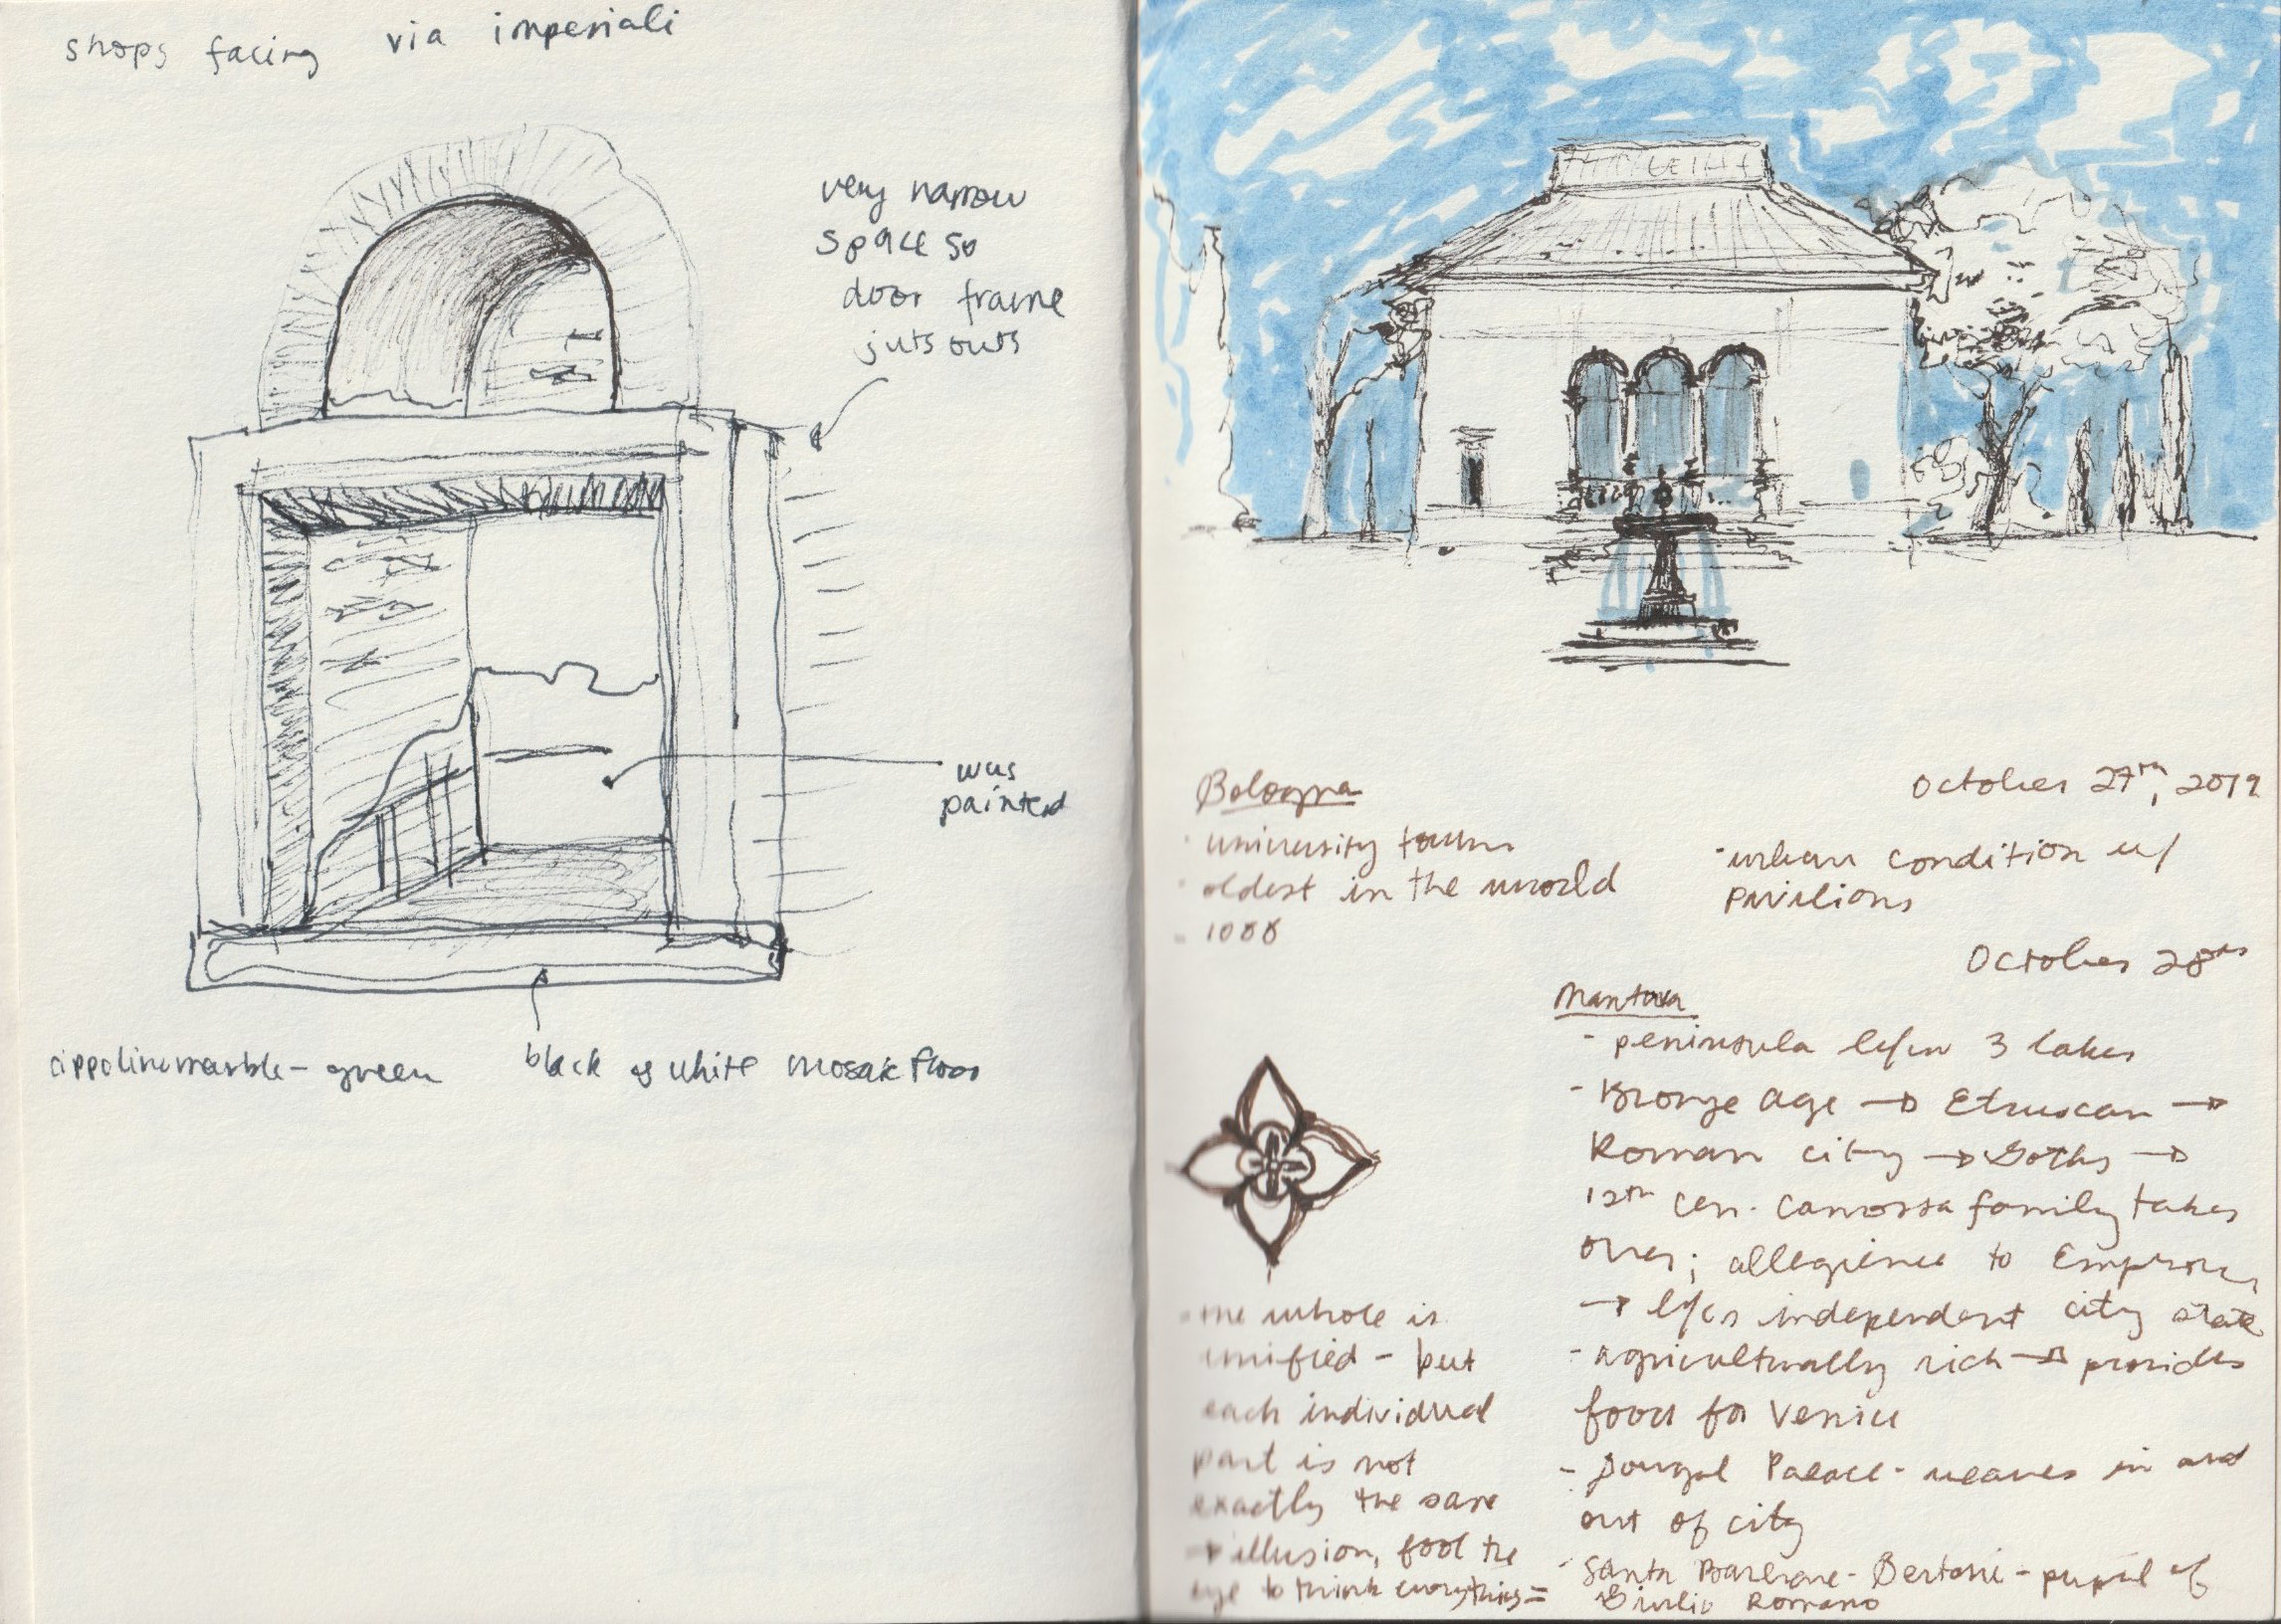 shops facing via imperiali
very narrow
space so
door frame
juts outs
was
painted
cippolino marble - green
black & white mosaic floor
October 27th, 2019
Bologna
· university town
· oldest in the world
- 1088
· urban condition w/
pavilions
October 28th
Mantova
- peninsula b/w 3 lakes
- Bronze age → Etruscan →
Roman city → Goths →
12th cen. Canossa family takes
over; allegience to Emperor,
→ b/cs independent city state
- agriculturally rich → provides
food for Venice
- Dougal Palace - weaves in and
out of city
· Santa Barbara - Bertani - pupil of
Giulio Romano
- the whole is
unified - but
each individual
part is not
exactly the same
→ illusion, fool the
eye to think everything =